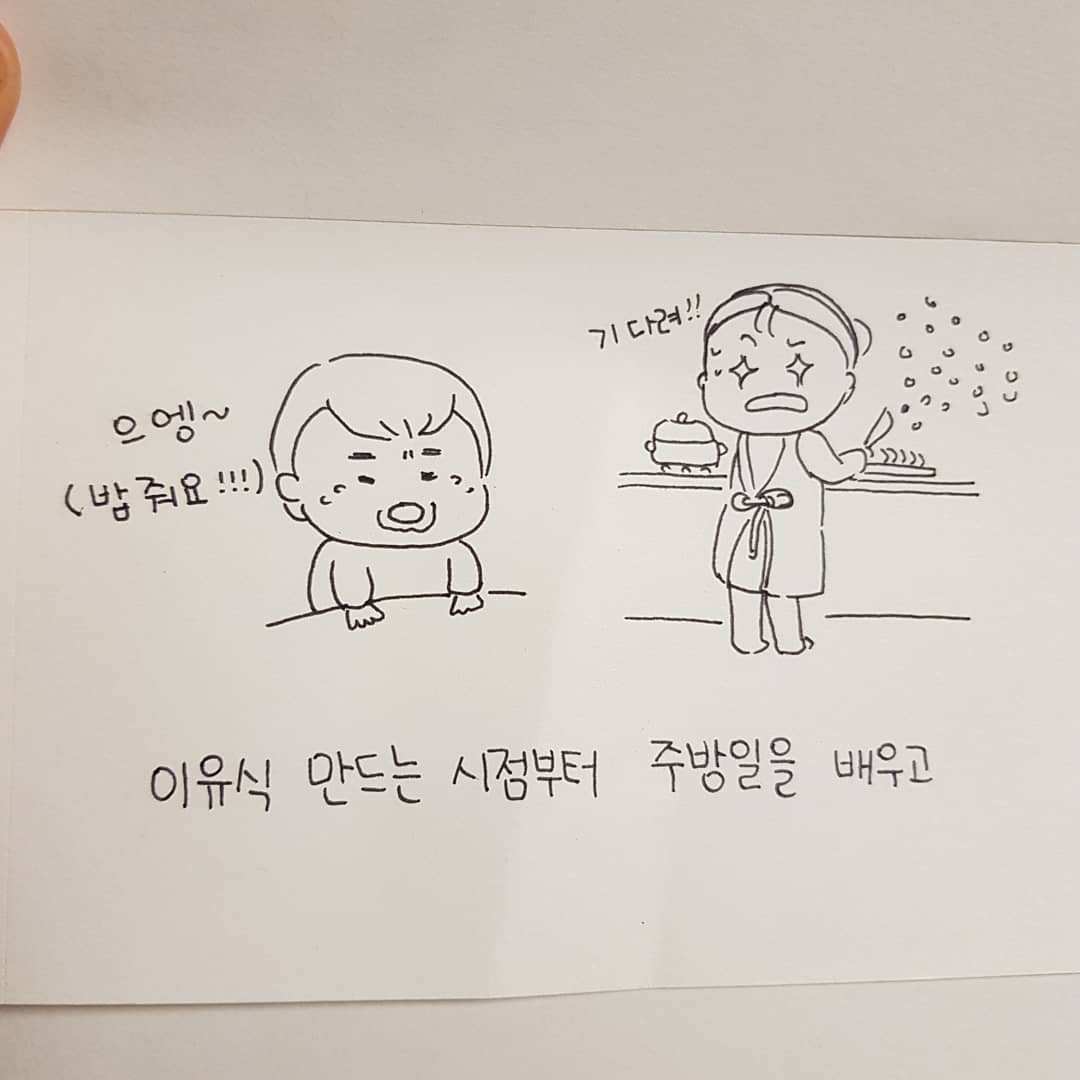 으엥~
(밥 줘요!!!)
기다려!!
이유식 만드는 시점부터 주방일을 배우고